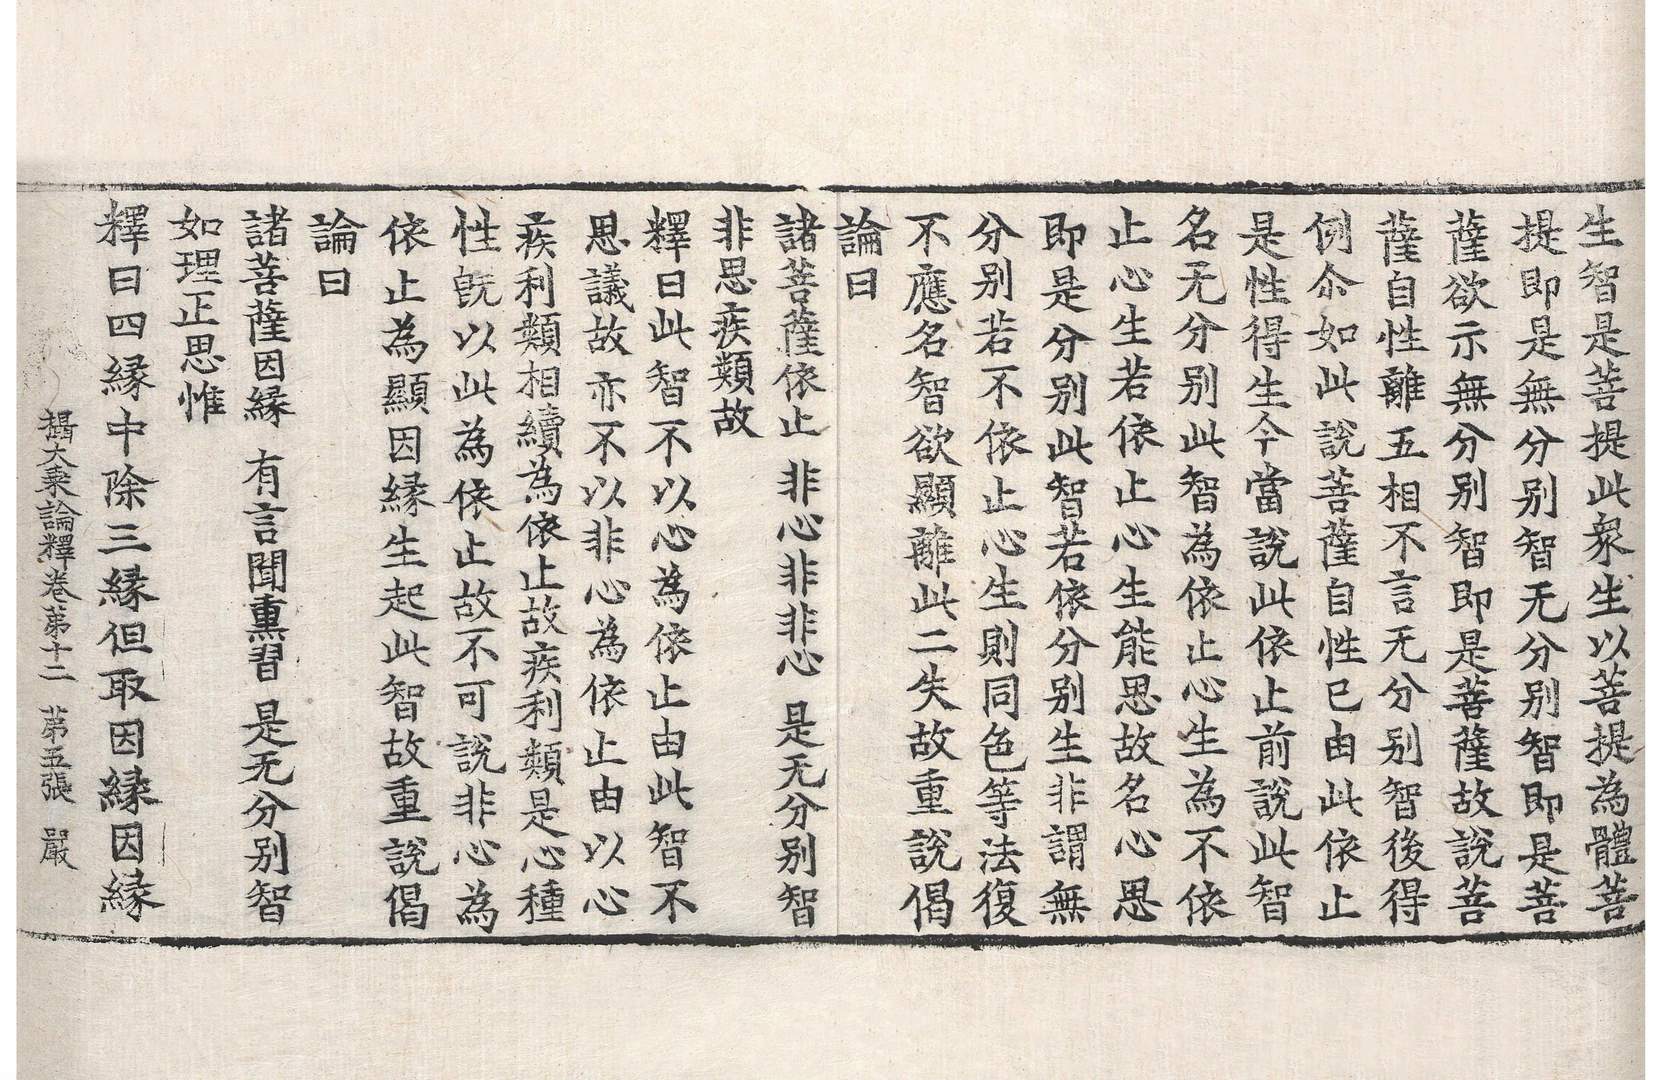 生智是菩提此衆生以菩提為體菩
提即是無分別智无分別智即是菩
薩欲示無分別智即是菩薩故說菩
薩自性離五相不言无分別智後得
例尒如此說菩薩自性已由此依止
是性得生今當說此依止前說此智
名无分別此智為依止心生為不依
止心生若依止心生能思故名心思
即是分別此智若依分別生非謂無
分別若不依止心生則同色等法復
不應名智欲顯離此二失故重說偈
論曰
諸菩薩依止 非心非非心 是无分別智
非思疾類故
釋曰此智不以心為依止由此智不
思議故亦不以非心為依止由以心
疾利類相續為依止故疾利類是心種
性旣以此為依止故不可說非心為
依止為顯因緣生起此智故重說偈
論曰
諸菩薩因緣 有言聞熏習 是无分別智
如理正思惟
釋曰四緣中除三緣但取因緣因緣
攝大乘論釋卷第十二 第五張 嚴